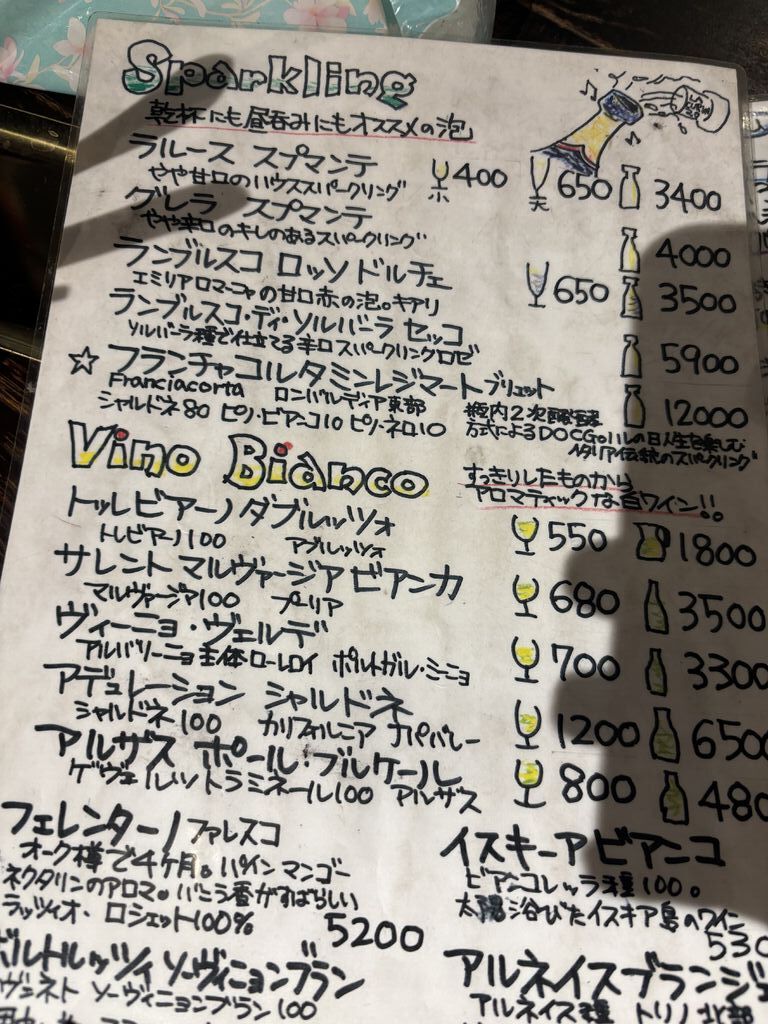 Sparkling
乾杯にも昼呑みにもオススメの泡
ラルース スプマンテ 400 650 3400
小 大
やや甘口のハウススパークリング
グレラ スプマンテ 4000
やや辛口のキレのあるスパークリング
ランブルスコ ロッソ ドルチェ 650 3500
エミリアロマーニャの甘口赤の泡。キアリ
ランブルスコ・ディ・ソルバーラ セッコ 5900
ソルバーラ種で仕立てる辛口スパークリングロゼ
☆フランチャコルタ ミンレジマート ブリュット 12000
Franciacorta ロンバルディア東部
シャルドネ80 ピノ・ビアンコ10 ピノ・ネロ10
瓶内2次
方式によるDOCG
イタリア伝統のスパークリング
Vino Bianco
すっきりしたものから
アロマティックな白ワイン!!
トレビアーノ ダブルッツォ 550 1800
トレビアーノ100 アブルッツォ
サレント マルヴァージア ビアンカ 680 3500
マルヴァージア100 プーリア
ヴィーニョ・ヴェルデ 700 3300
アルバリーニョ主体ローレロイ ポルトガル・ミーニョ
アデュレーション シャルドネ 1200 6500
シャルドネ100 カリフォルニア ナパバレー
アルザス ポール・ブルケール 800 480
ゲヴェルツトラミネール100 アルザス
フェレンターノ ファレスコ
オーク樽で4ヶ月。パイン マンゴー
ネクタリンのアロマ。バニラ香がすばらしい
ラッツィオ・ロシェット100%
5200
イスキーア ビアンコ
ビアンコレッラ種100。
太陽浴びたイスキア島のワイン
530
ソーヴィニョンブラン
ヴェネト ソーヴィニョンブラン100
アルネイスブランジ
アルネイス種 トリノ北部